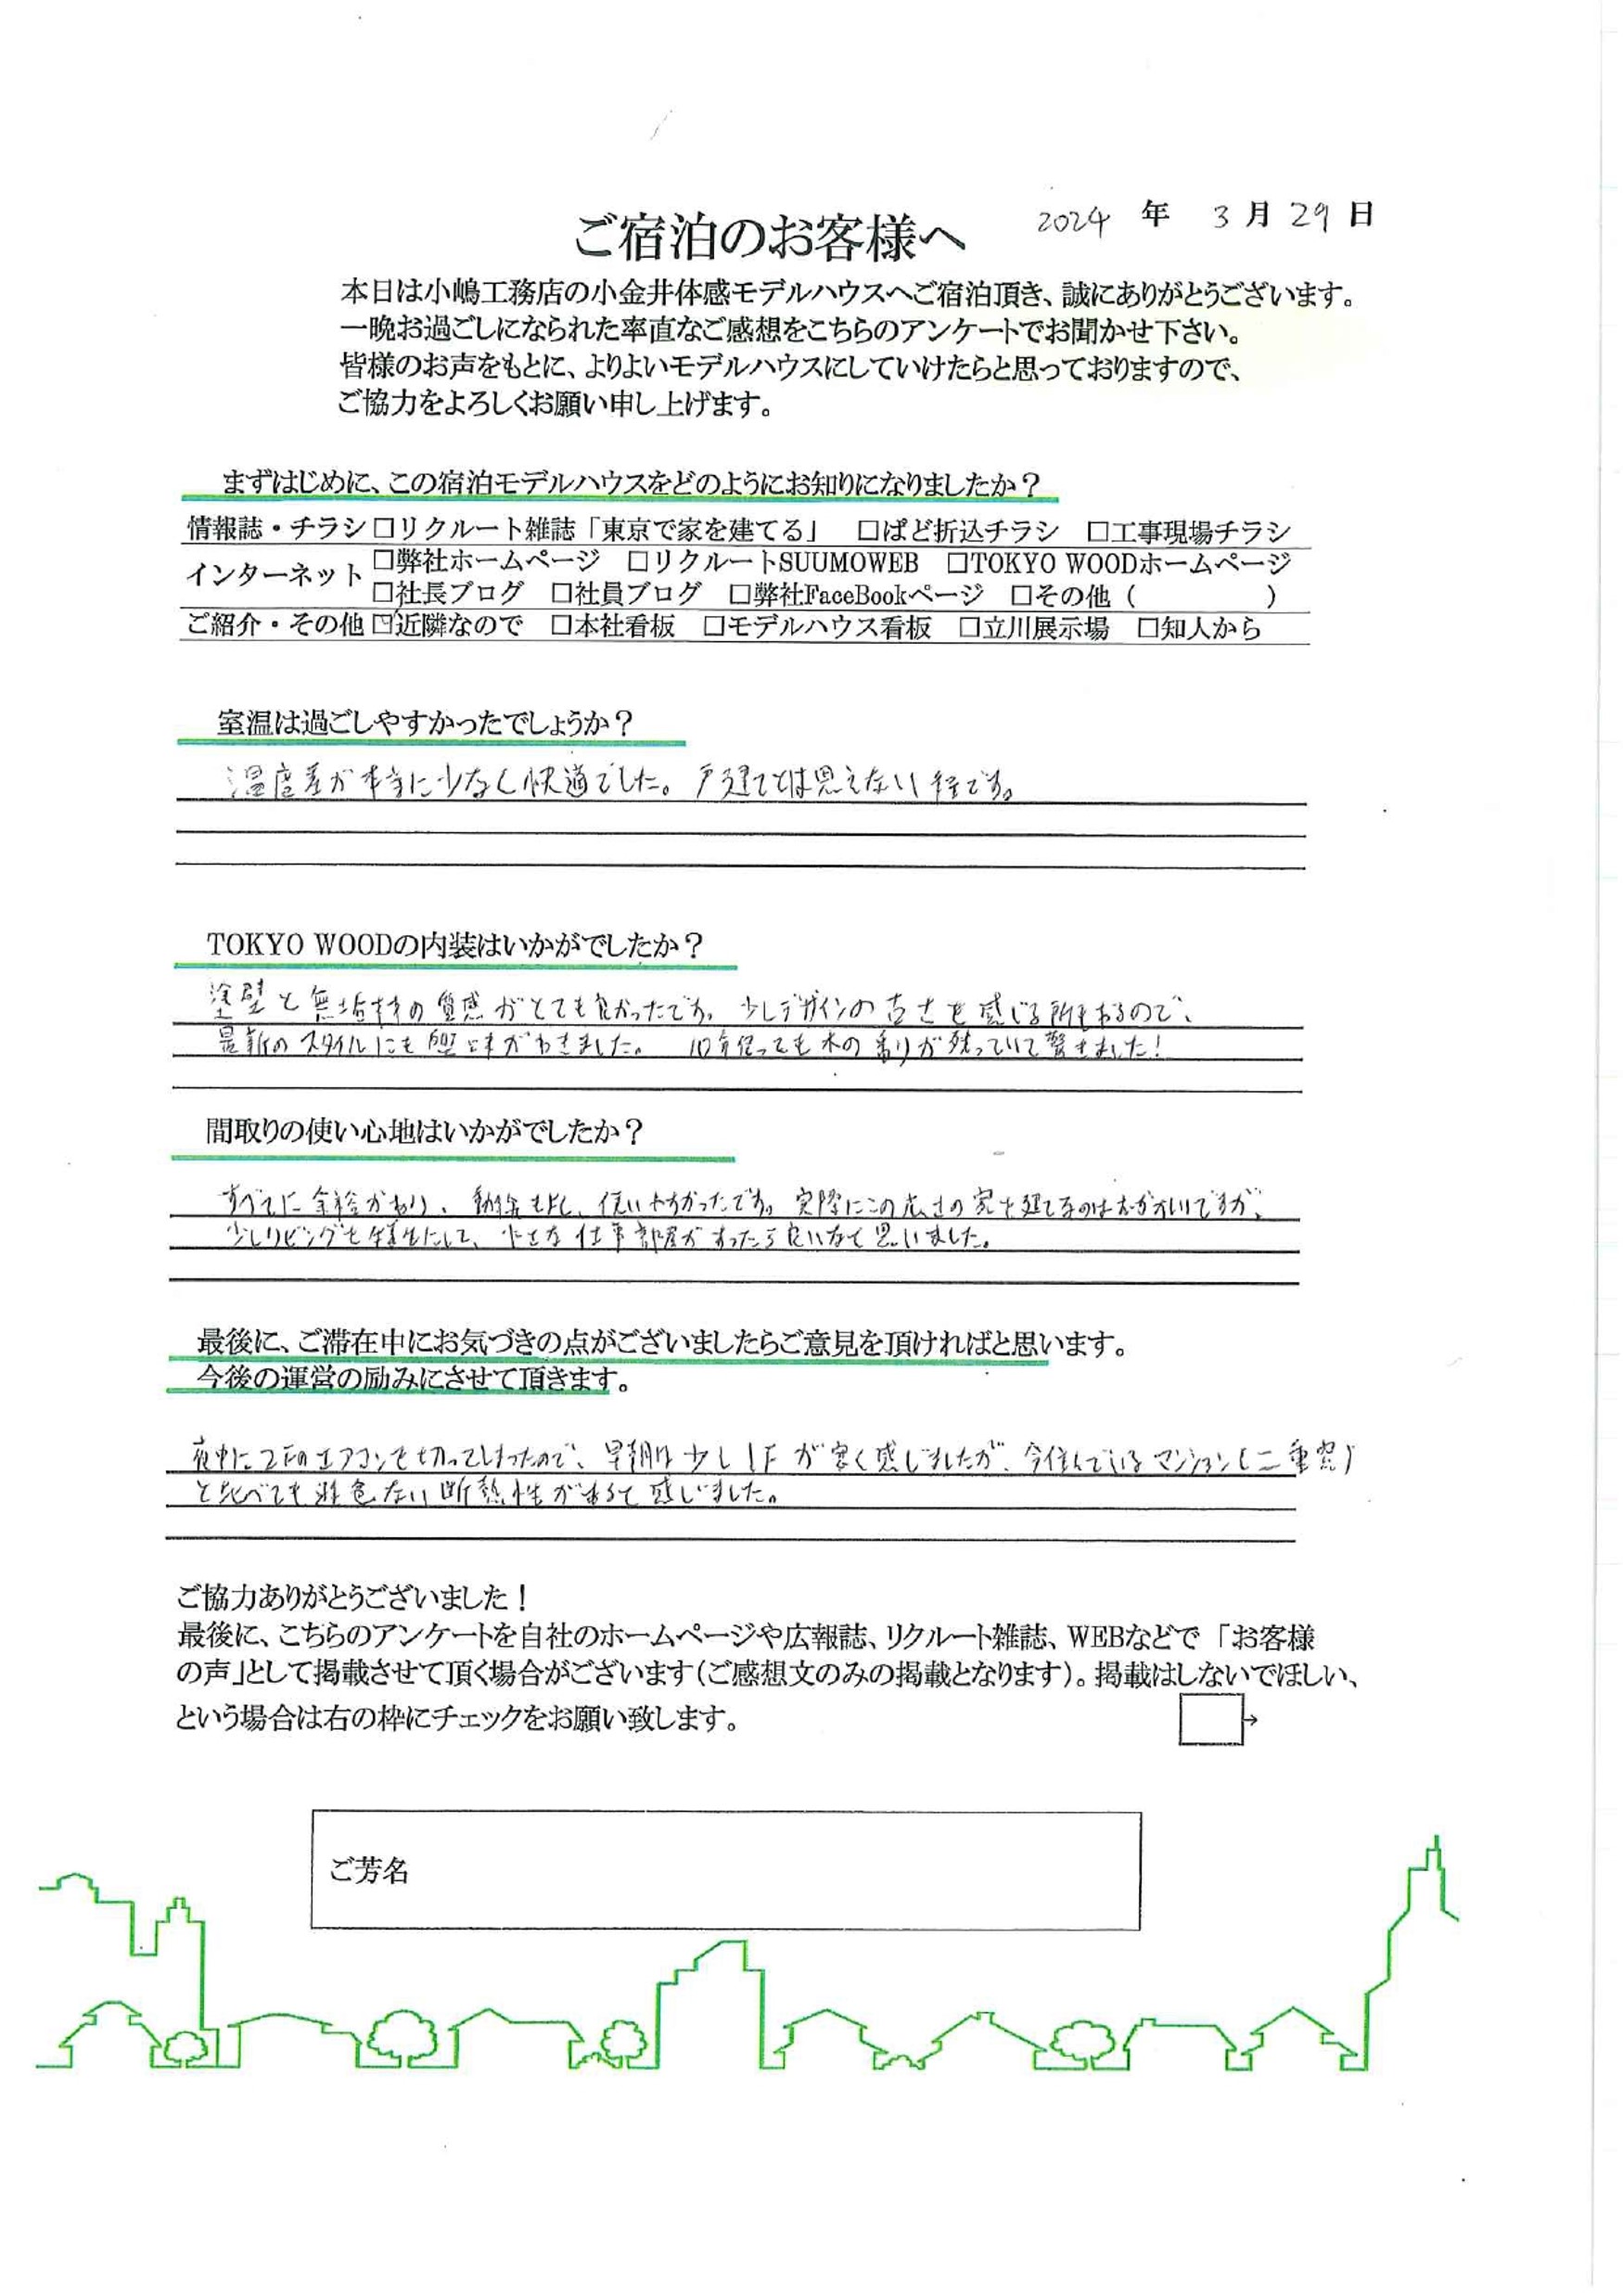 2024 年 3 月 29 日
ご宿泊のお客様へ
本日は小嶋工務店の小金井体感モデルハウスへご宿泊頂き、誠にありがとうございます。
一晩お過ごしになられた率直なご感想をこちらのアンケートでお聞かせ下さい。
皆様のお声をもとに、よりよいモデルハウスにしていけたらと思っておりますので、
ご協力をよろしくお願い申し上げます。
まずはじめに、この宿泊モデルハウスをどのようにお知りになりましたか？
情報誌・チラシ □リクルート雑誌「東京で家を建てる」 □ぱど折込チラシ □工事現場チラシ
インターネット □弊社ホームページ □リクルートSUUMOWEB □TOKYO WOODホームページ
□社長ブログ □社員ブログ □弊社FaceBookページ □その他（ ）
ご紹介・その他 ☑近隣なので □本社看板 □モデルハウス看板 □立川展示場 □知人から
室温は過ごしやすかったでしょうか？
温度差が本当に少なく快適でした。戸建てとは思えない程です。
TOKYO WOODの内装はいかがでしたか？
塗壁と無垢材の質感がとても良かったです。少しデザインの古さを感じる所もあるので、
最新のスタイルにも興味がわきました。10年経っても木の香りが残っていて驚きました！
間取りの使い心地はいかがでしたか？
すべてに余裕があり、動線も良く、使いやすかったです。実際にこの広さの家を建てるのはむずかしいですが、
少しリビングを犠牲にして、小さな仕事部屋があったら良いなと思いました。
最後に、ご滞在中にお気づきの点がございましたらご意見を頂ければと思います。
今後の運営の励みにさせて頂きます。
夜中に2Fのエアコンを切ってしまったので、早朝は少し1Fが寒く感じましたが、今住んでいるマンション(二重窓)
と比べても遜色ない断熱性があると感じました。
ご協力ありがとうございました！
最後に、こちらのアンケートを自社のホームページや広報誌、リクルート雑誌、WEBなどで「お客様
の声」として掲載させて頂く場合がございます（ご感想文のみの掲載となります）。掲載はしないでほしい、
という場合は右の枠にチェックをお願い致します。 □→
ご芳名